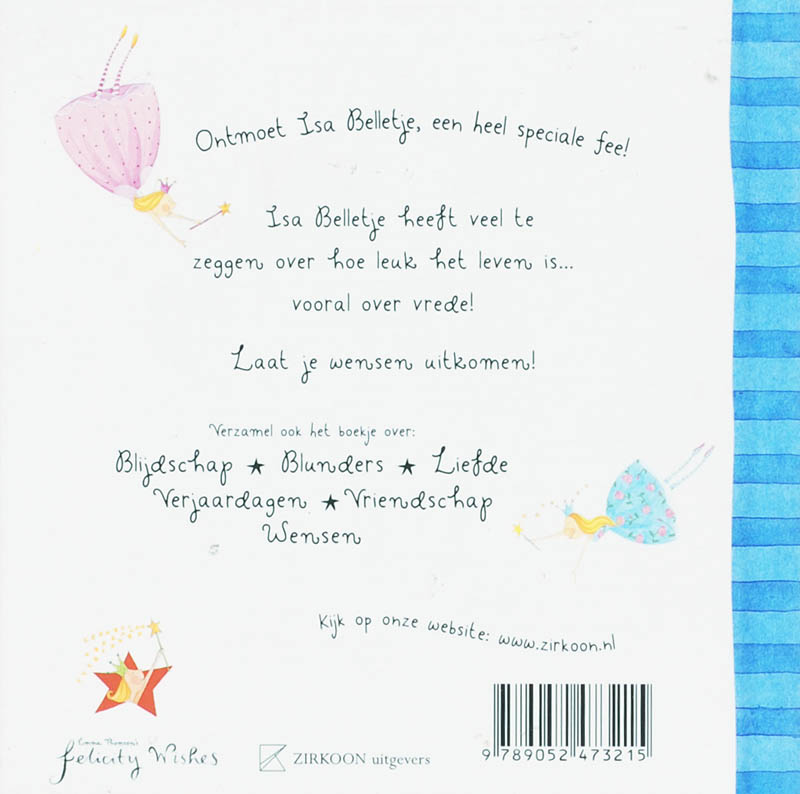 Ontmoet Isa Belletje, een heel speciale fee!
Isa Belletje heeft veel te
zeggen over hoe leuk het leven is...
vooral over vrede!
Laat je wensen uitkomen!
Verzamel ook het boekje over:
Blijdschap ★ Blunders ★ Liefde
Verjaardagen ★ Vriendschap
Wensen
Kijk op onze website: www.zirkoon.nl
Emma Thomson's
felicity Wishes
ZIRKOON uitgevers
9 789052 473215